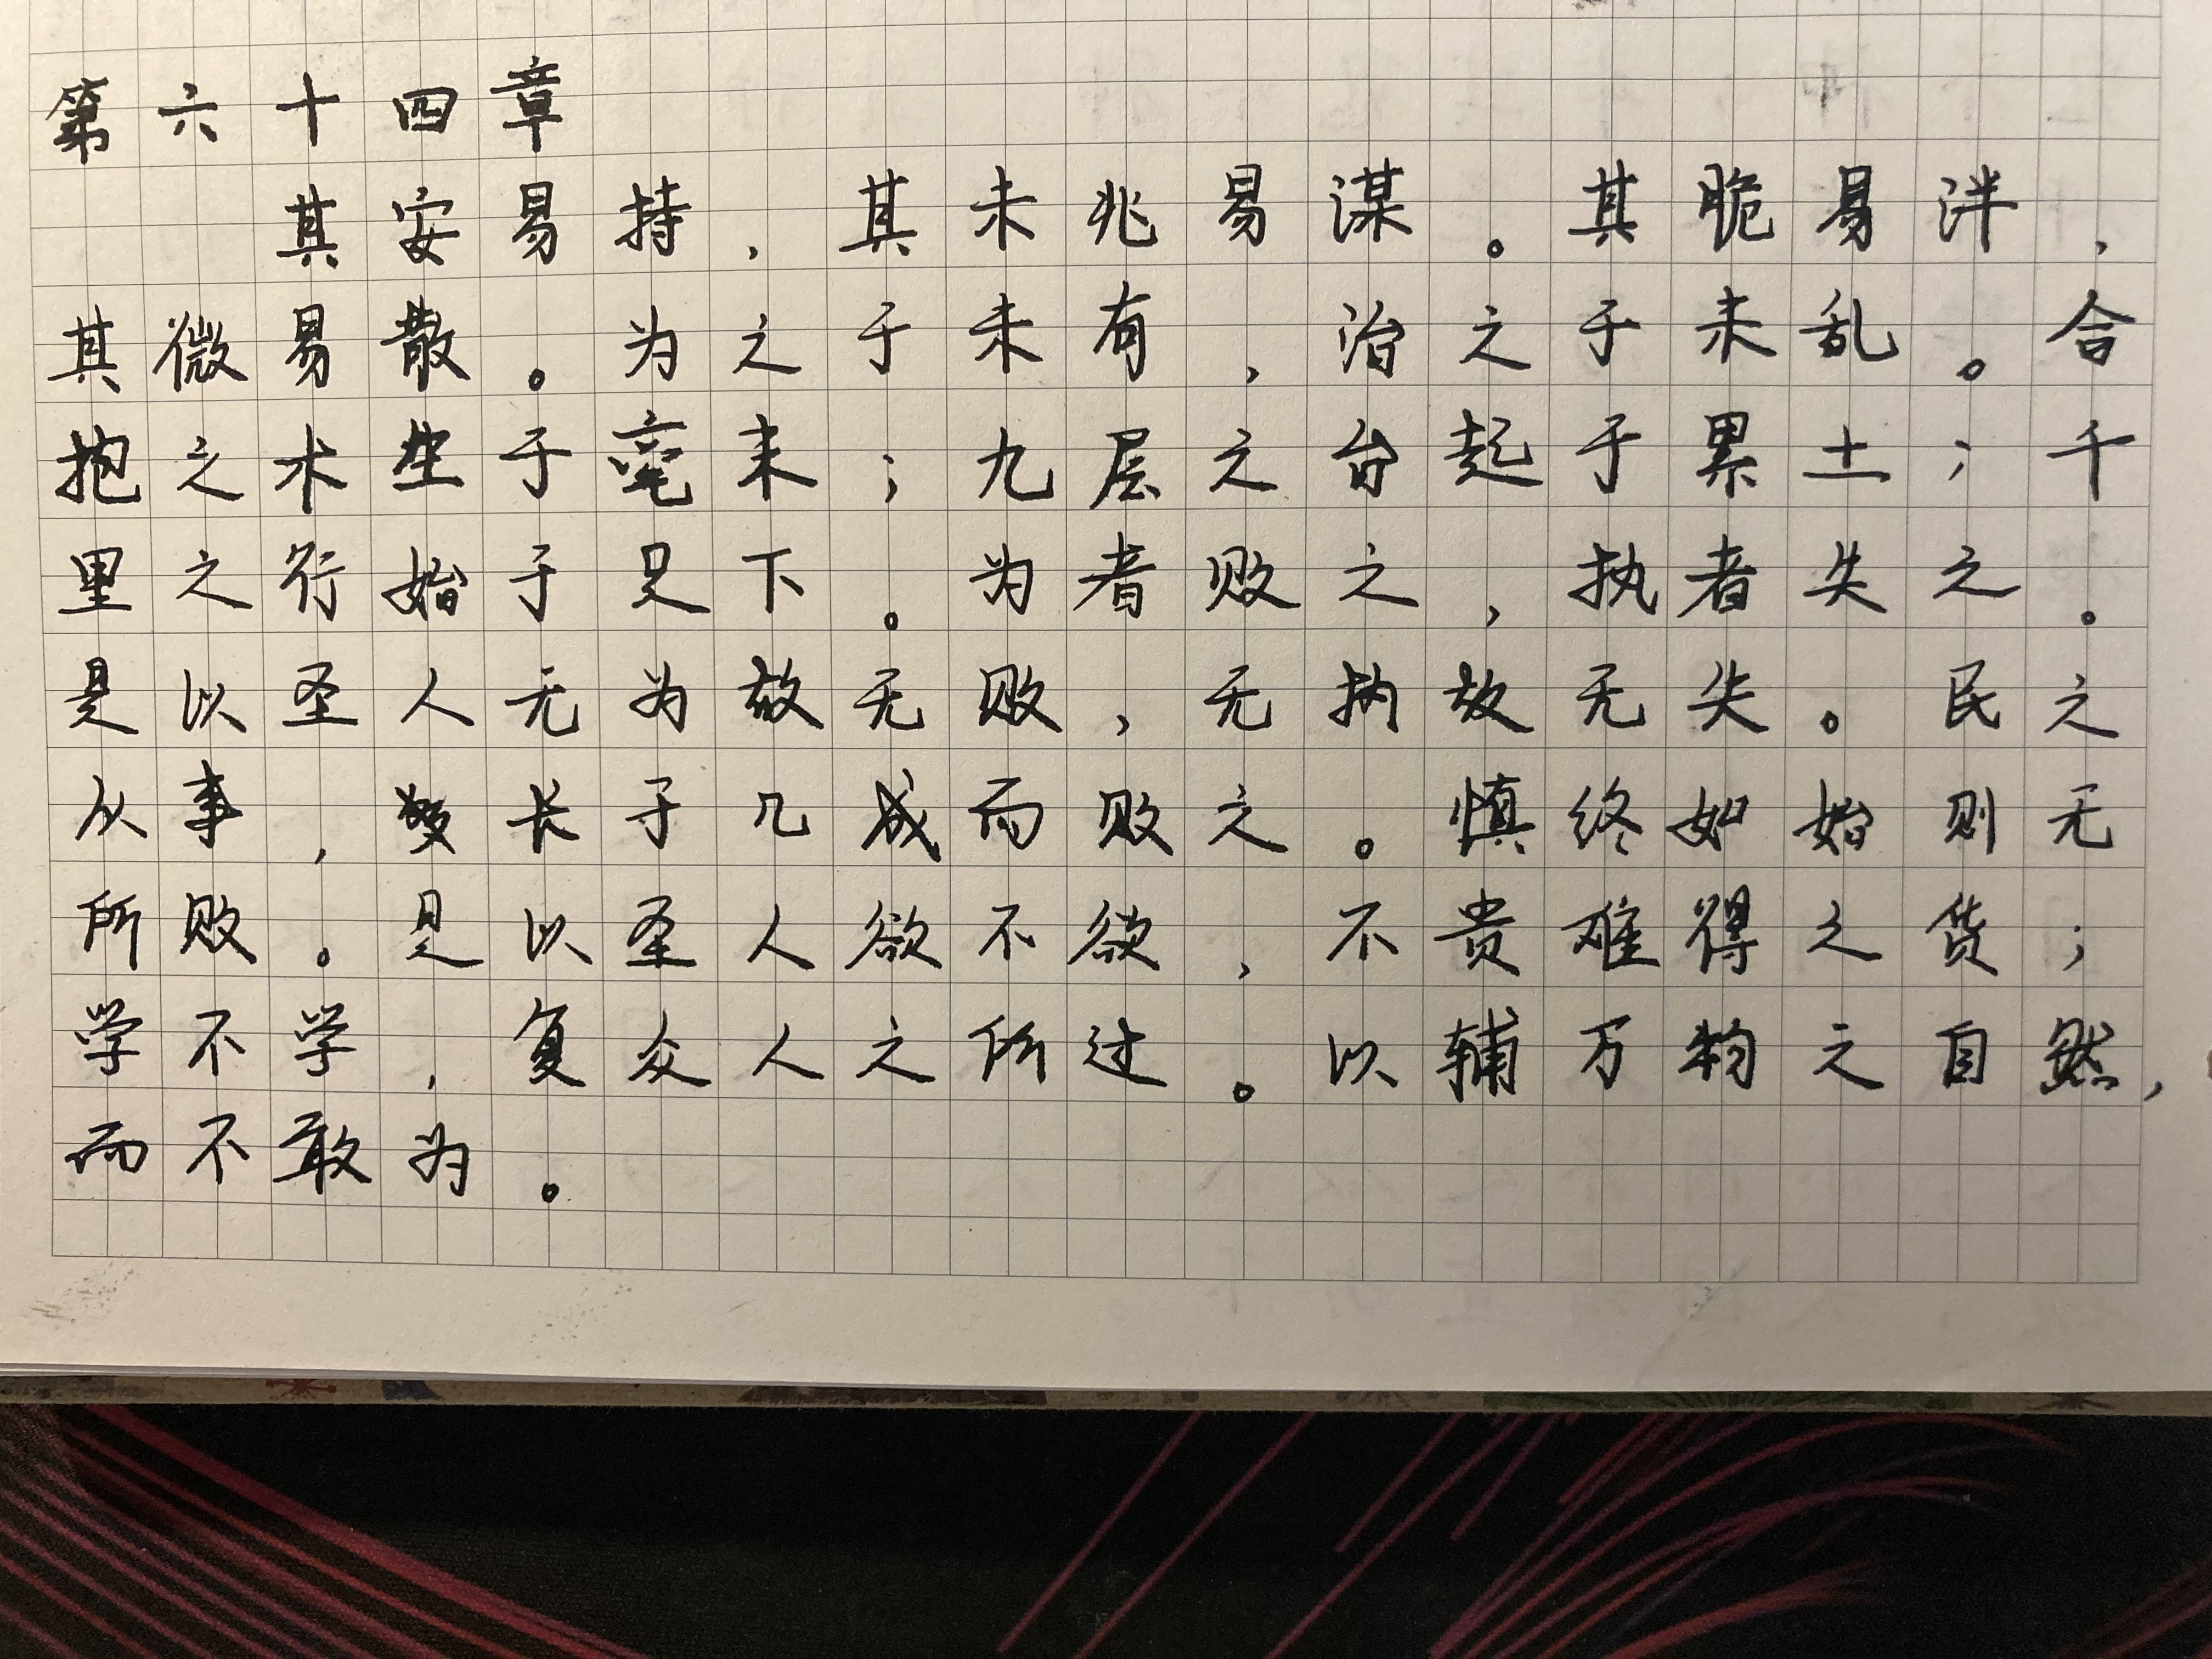 第六十四章
其安易持，其未兆易谋。其脆易泮，
其微易散。为之于未有，治之于未乱。合
抱之木生于毫末；九层之台起于累土；千
里之行始于足下。为者败之，执者失之。
是以圣人无为故无败，无执故无失。民之
从事，常于几成而败之。慎终如始则无
所败。是以圣人欲不欲，不贵难得之货；
学不学，复众人之所过。以辅万物之自然，
而不敢为。